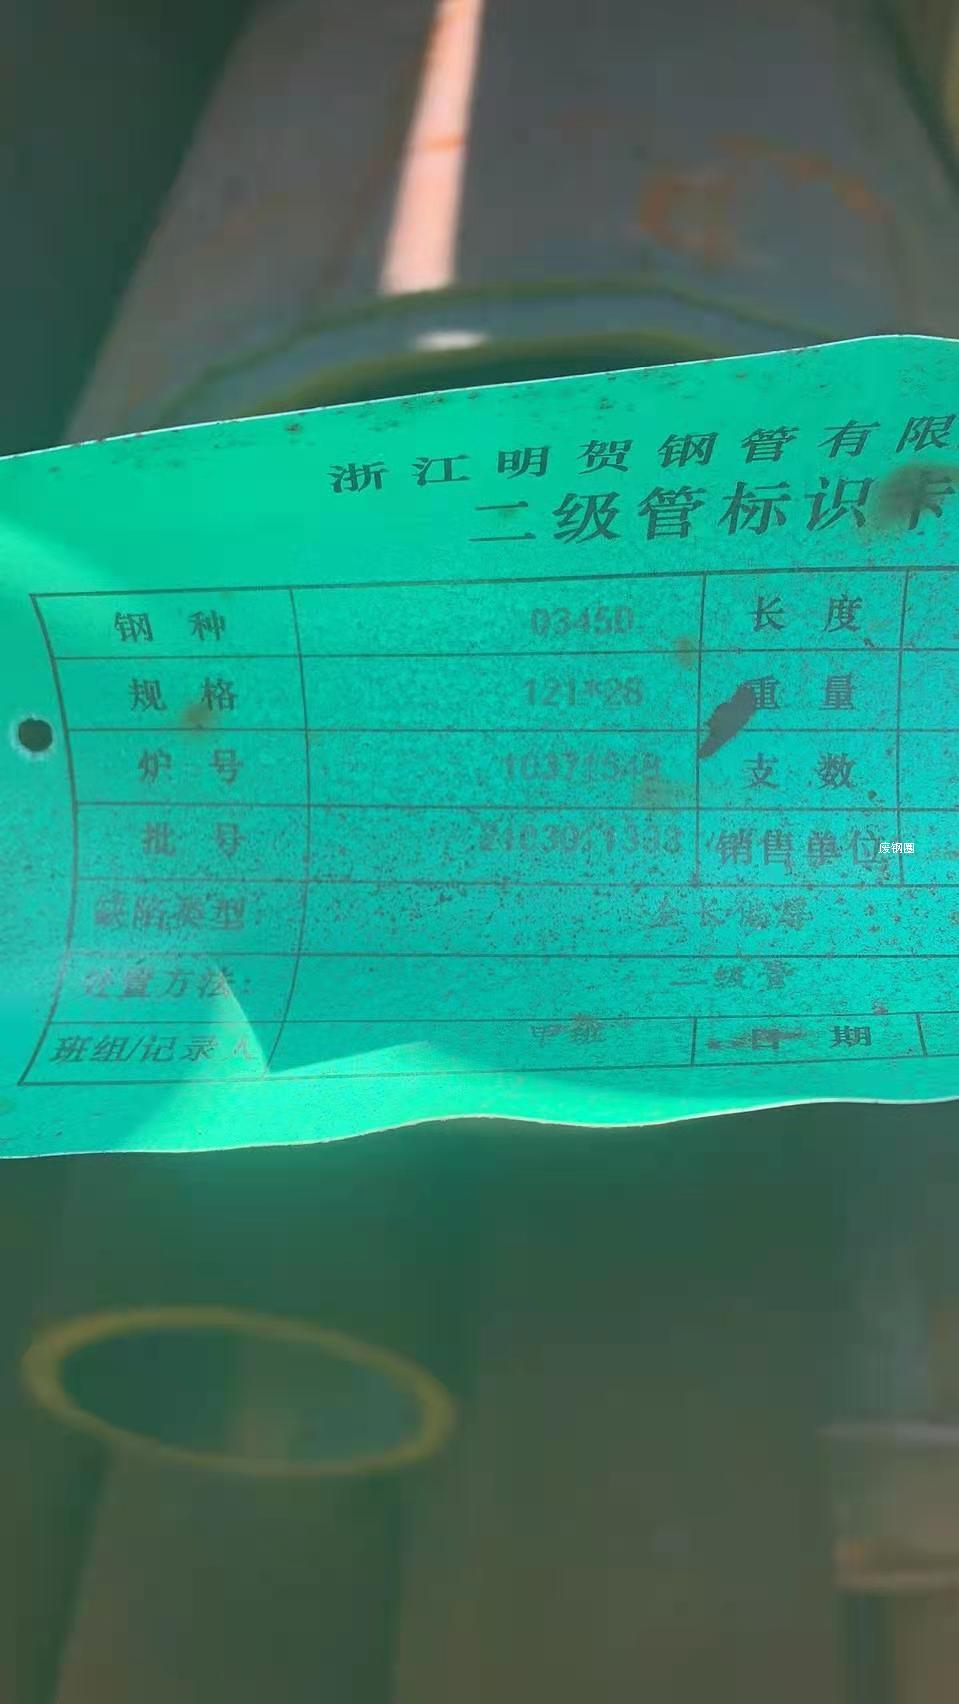 浙江明贺钢管有限
二级管标识卡
钢种 Q345D 长度
规格 121*28 重量
炉号 支数
批号 销售单位
废钢圈
缺陷类型
处置方法: 二级管
班组/记录人 甲班 日期